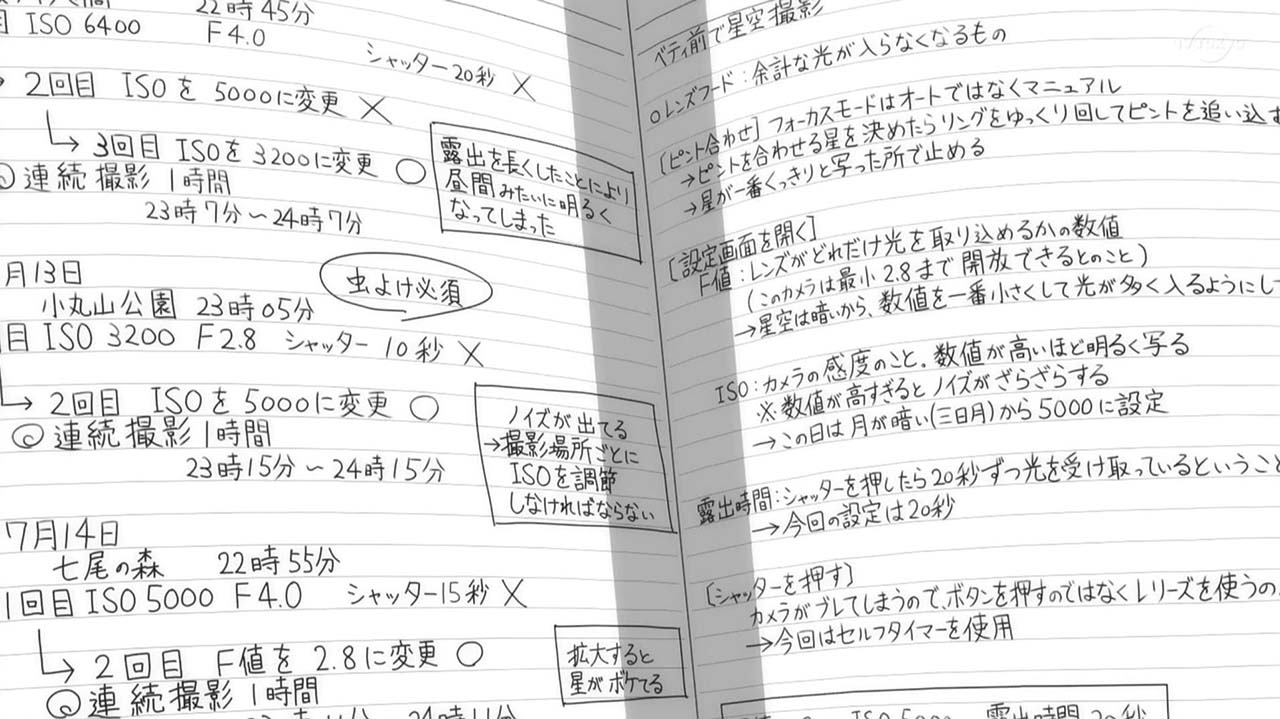 22時45分
目 ISO 6400 F4.0
シャッター20秒 ×
2回目 ISOを 5000に変更 ×
3回目 ISOを 3200に変更 ○
連続撮影 1時間
23時7分～24時7分
露出を長くしたことにより
昼間みたいに明るく
なってしまった
月13日
虫よけ必須
小丸山公園 23時05分
目 ISO 3200 F2.8 シャッター 10秒 ×
2回目 ISOを 5000に変更 ○
◎連続撮影1時間
23時15分～24時15分
ノイズが出てる
→撮影場所ごとに
ISOを調節
しなければならない
7月14日
七尾の森 22時55分
1回目 ISO 5000 F4.0 シャッター15秒 ×
2回目 F値を 2.8に変更 ○
◎連続撮影 1時間
拡大すると
星がボケてる
ベティ前で星空撮影
○レンズフード:余計な光が入らなくなるもの
[ピント合わせ] フォーカスモードはオートではなくマニュアル
→ピントを合わせる星を決めたらリングをゆっくり回してピントを追い込む
→星が一番くっきりと写った所で止める
[設定画面を開く]
F値:レンズがどれだけ光を取り込めるかの数値
(このカメラは最小2.8まで開放できるとのこと)
→星空は暗いから、数値を一番小さくして光が多く入るようにして
ISO:カメラの感度のこと。数値が高いほど明るく写る
※数値が高すぎるとノイズがざらざらする
→この日は月が暗い(三日月)から5000に設定
露出時間:シャッターを押したら20秒ずつ光を受け取っているということ
→今回の設定は20秒
[シャッターを押す]
カメラがブレてしまうので、ボタンを押すのではなくレリーズを使うの
→今回はセルフタイマーを使用
ISO 5000 露出時間 20秒
TV TOKYO